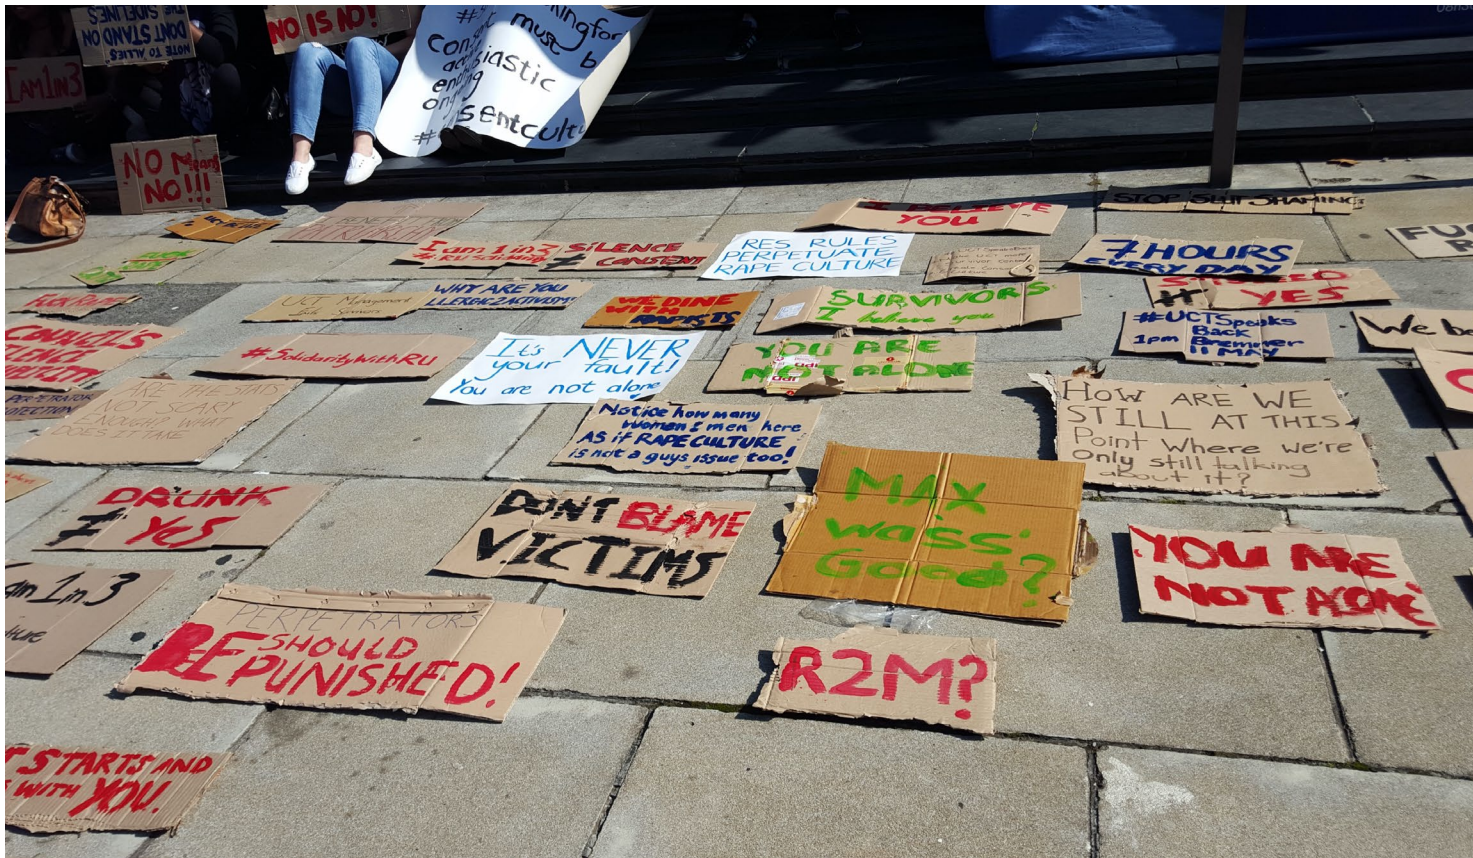 DON'T STAND ON
THE SIDELINES
NOTE TO ALLIES
NO IS NO!
I AM 1 IN 3
must b
iastic
NO Means
NO!!!
I BELIEVE
YOU
STOP SLUT SHAMING
I am 1 in 3
# RU Solidarity
SILENCE
≠ CONSENT
RES RULES
PERPETUATE
RAPE CULTURE
7 HOURS
EVERY DAY
≠ YES
UCT Management
WHY ARE YOU
WE DINE
WITH
RAPISTS
SURVIVORS
I believe you
#UCTSpeaks
Back
1pm Bremner
11 MAY
We be
COUNCIL'S
#SolidarityWithRU
It's NEVER
your fault!
You are not alone
YOU ARE
NOT ALONE
PERPETRATOR
ARE
NOT SCARY
ENOUGH? WHAT
DOES IT TAKE
Notice how many
women & men here
AS if RAPE CULTURE
is not a guys issue too!
HOW ARE WE
STILL AT THIS
Point Where we're
Only still talking
about it?
DRUNK
≠ YES
DON'T BLAME
VICTIMS
MAX
wass'
Good?
YOU ARE
NOT ALONE
am 1 in 3
PERPETRATORS
SHOULD
BE PUNISHED!
R2M?
T STARTS AND
WITH YOU.